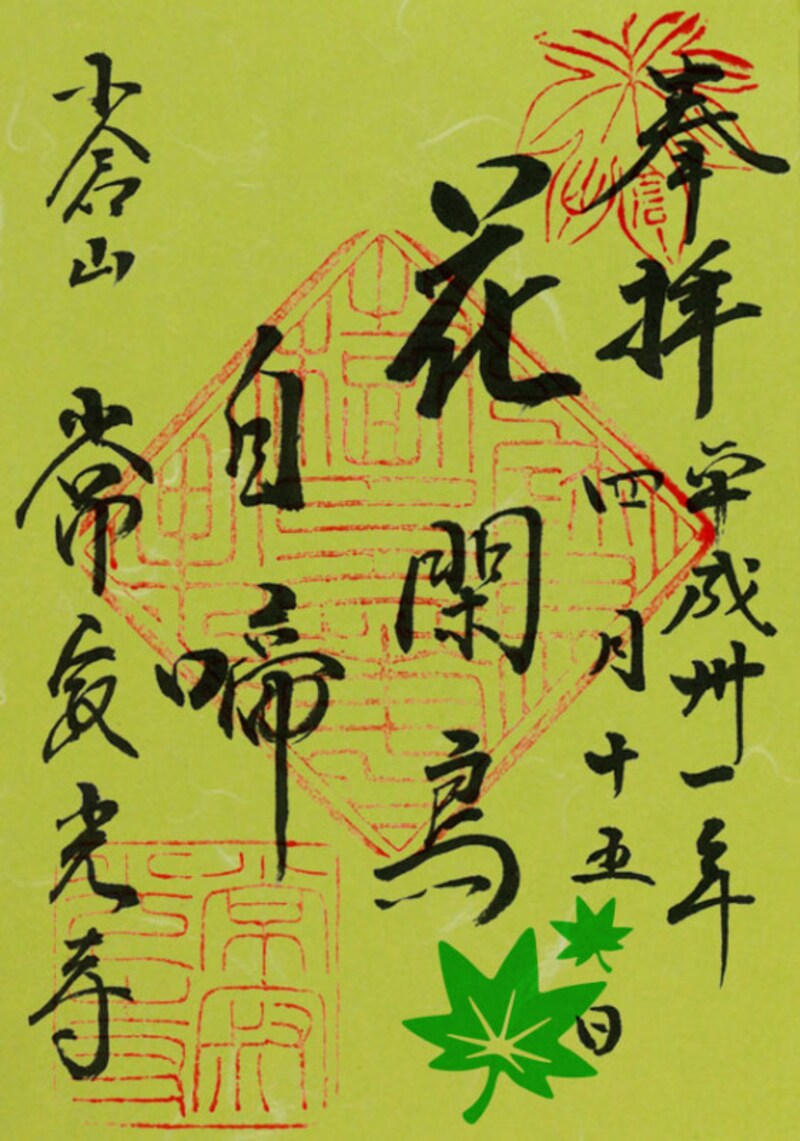 奉拝
平成卅一年
四月十五日
花閑鳥
自啼
小倉山
常寂光寺